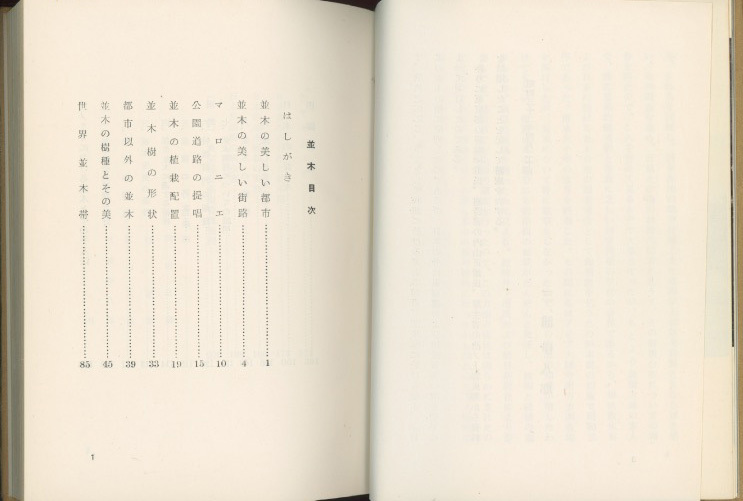 並木目次
はしがき
並木の美しい都市 1
並木の美しい街路 4
マロニエ 10
公園道路の提唱 15
並木の植栽配置 19
並木樹の形状 33
都市以外の並木 39
並木の樹種とその美 45
世界並木帯 85
1